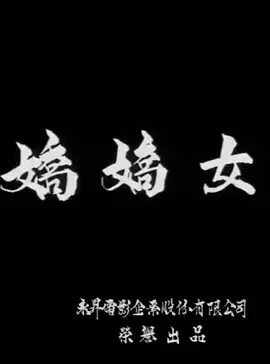 嬌嬌女
永昇電影企業股份有限公司
榮譽出品